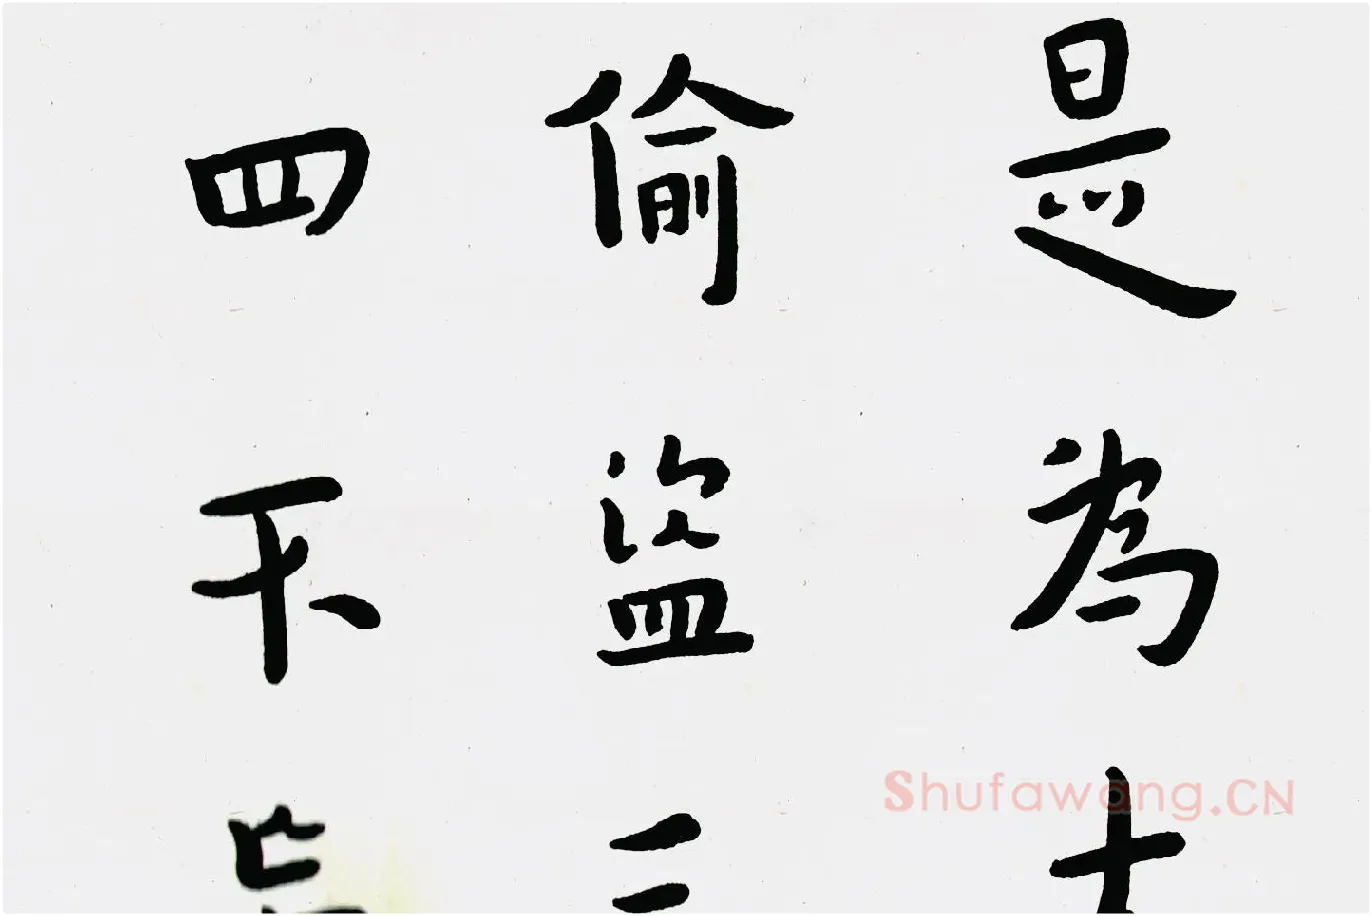 是為十
偷盜三
四不妄
Shufawang.CN